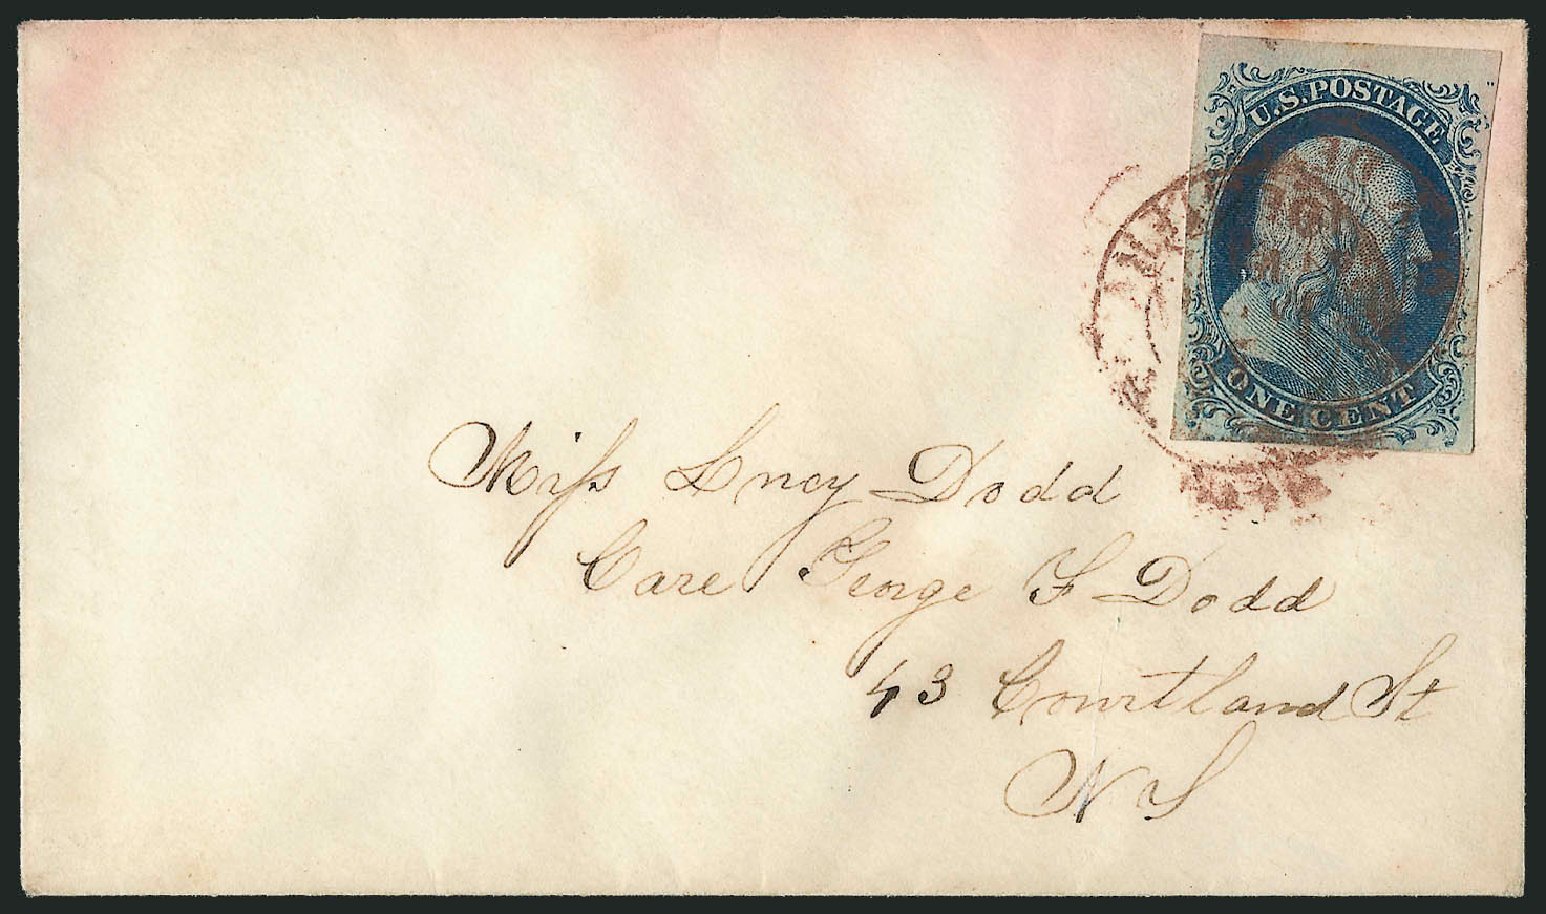 U.S. POSTAGE
ONE CENT
Miss Lucy Dodd
Care George F Dodd
43 Courtland St
N Y